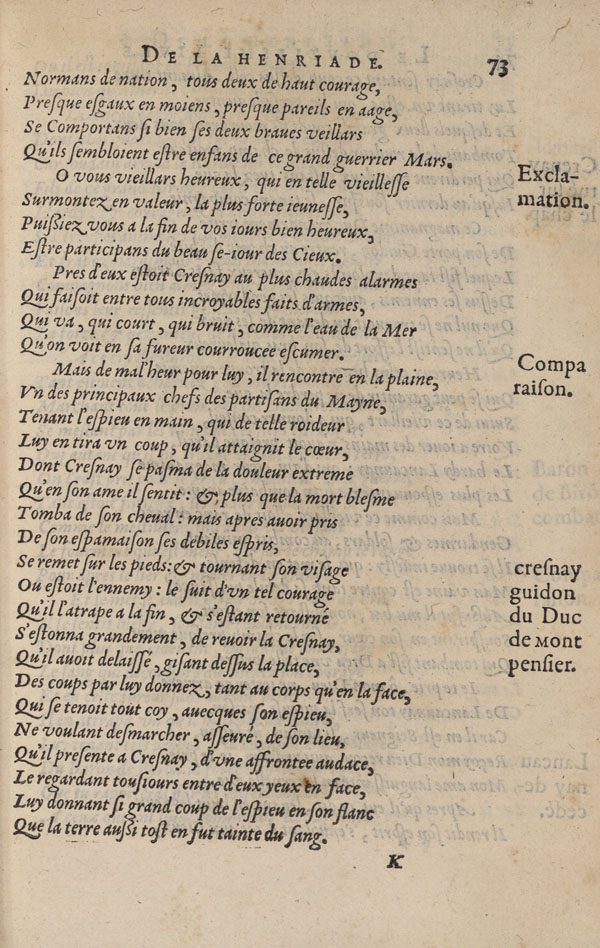 DE LA HENRIADE. 73
Normans de nation, tous deux de haut courage,
Presque esgaux en moiens, presque pareils en aage,
Se Comportans si bien ses deux braues veillars
Qu'ils sembloient estre enfans de ce grand guerrier Mars.
O vous vieillars heureux, qui en telle vieillesse
Excla-
Surmontez en valeur, la plus forte ieunesse,
mation.
Puissiez vous a la fin de vos iours bien heureux,
Estre participans du beau se-iour des Cieux.
Pres d'eux estoit Cresnay au plus chaudes alarmes
Qui faisoit entre tous incroyables faits d'armes,
Qui va, qui court, qui bruit, comme l'eau de la Mer
Qu'on voit en sa fureur courroucee escumer.
Compa
Mais de mal'heur pour luy, il rencontre en la plaine,
raison.
Vn des principaux chefs des partisans du Mayne,
Tenant l'espieu en main, qui de telle roideur
Luy en tira vn coup, qu'il attaignit le cœur,
Dont Cresnay se pasma de la douleur extreme
Qu'en son ame il sentit: & plus que la mort blesme
Tomba de son cheval: mais apres auoir pris
De son espamaison ses debiles espris,
Se remet sur les pieds: & tournant son visage
cresnay
Ou estoit l'ennemy: le suit d'vn tel courage
guidon
Qu'il l'atrape a la fin, & s'estant retourné
du Duc
S'estonna grandement, de reuoir la Cresnay,
de MONT
Qu'il auoit delaissé, gisant dessus la place,
pensier.
Des coups par luy donnez, tant au corps qu'en la face,
Qui se tenoit tout coy, auecques son espieu,
Ne voulant desmarcher, asseuré, de son lieu,
Qu'il presente a Cresnay, d'vne affrontee audace,
Le regardant tousiours entre d'eux yeux en face,
Luy donnant si grand coup de l'espieu en son flanc
Que la terre aussi tost en fut tainte du sang.
K